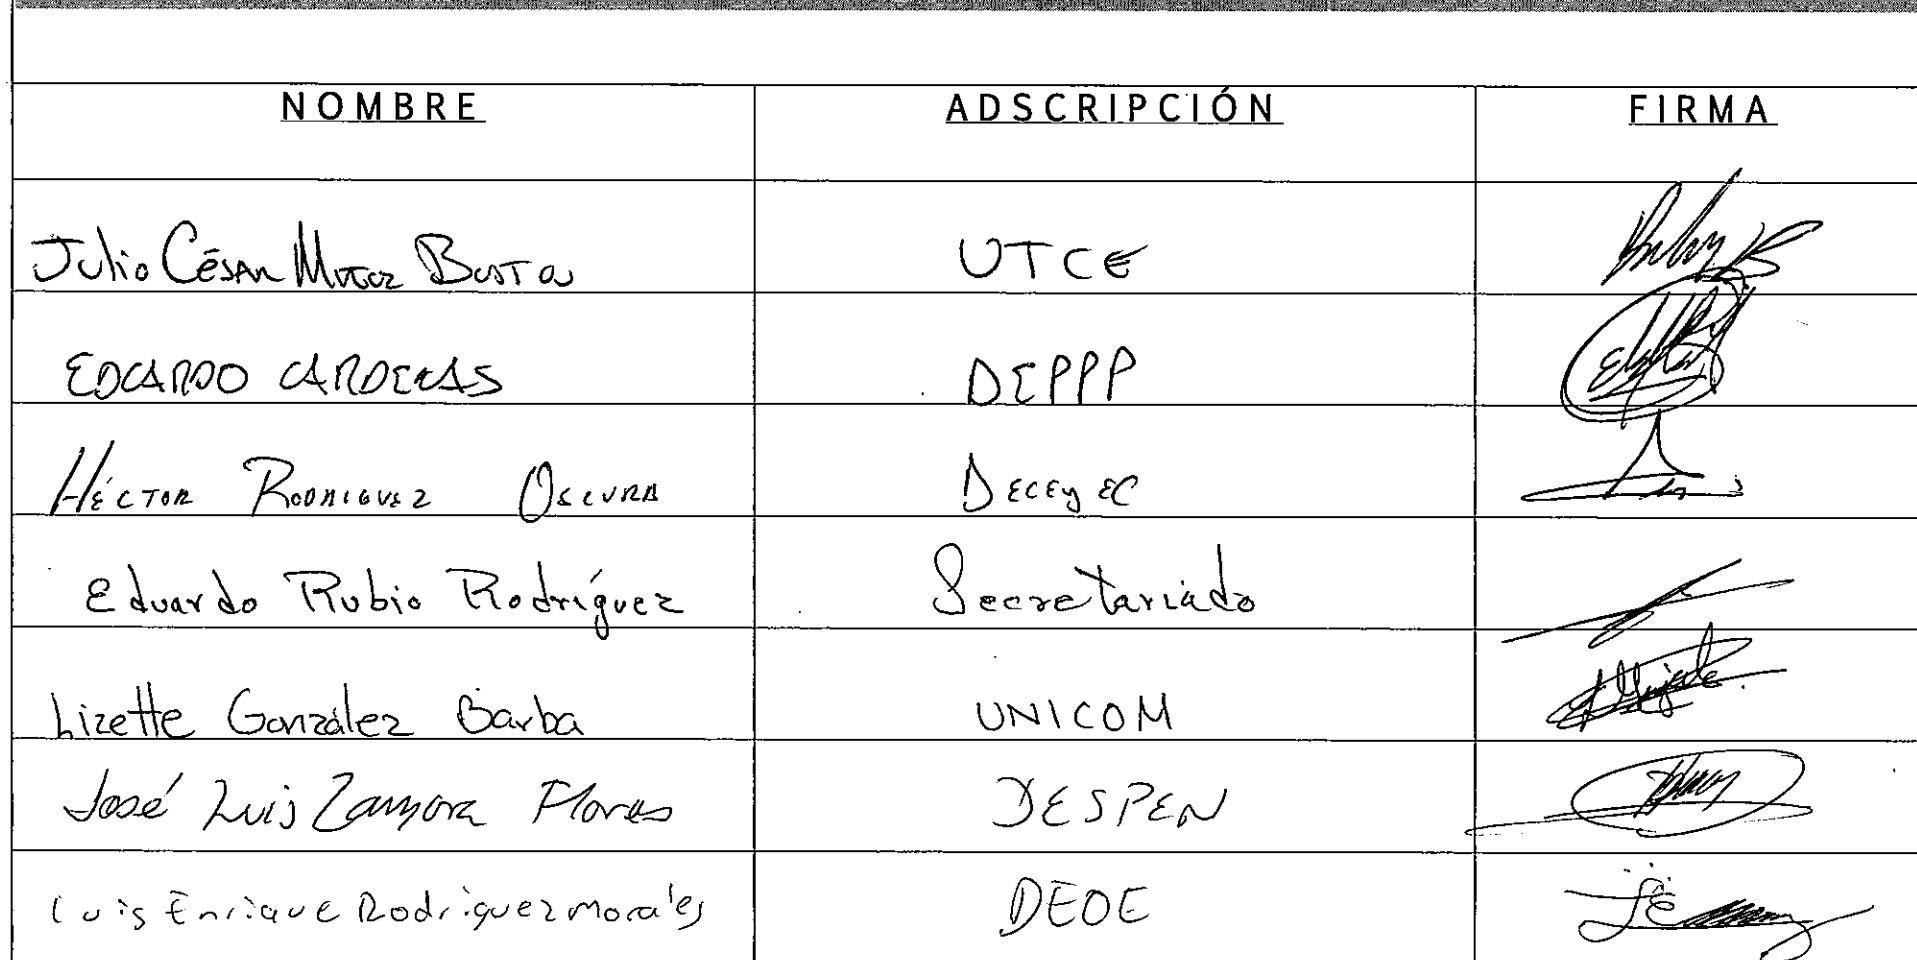 NOMBRE ADSCRIPCIÓN FIRMA
Julio César Muñoz Bustos UTCE
EDUARDO CARDENAS DEPPP
HÉCTOR RODRIGUEZ DECEyEC
Eduardo Rubio Rodríguez Secretariado
Lizette González Barba UNICOM
José Luis Zamora Flores DESPEN
Luis Enrique Rodriguez Morales DEOE